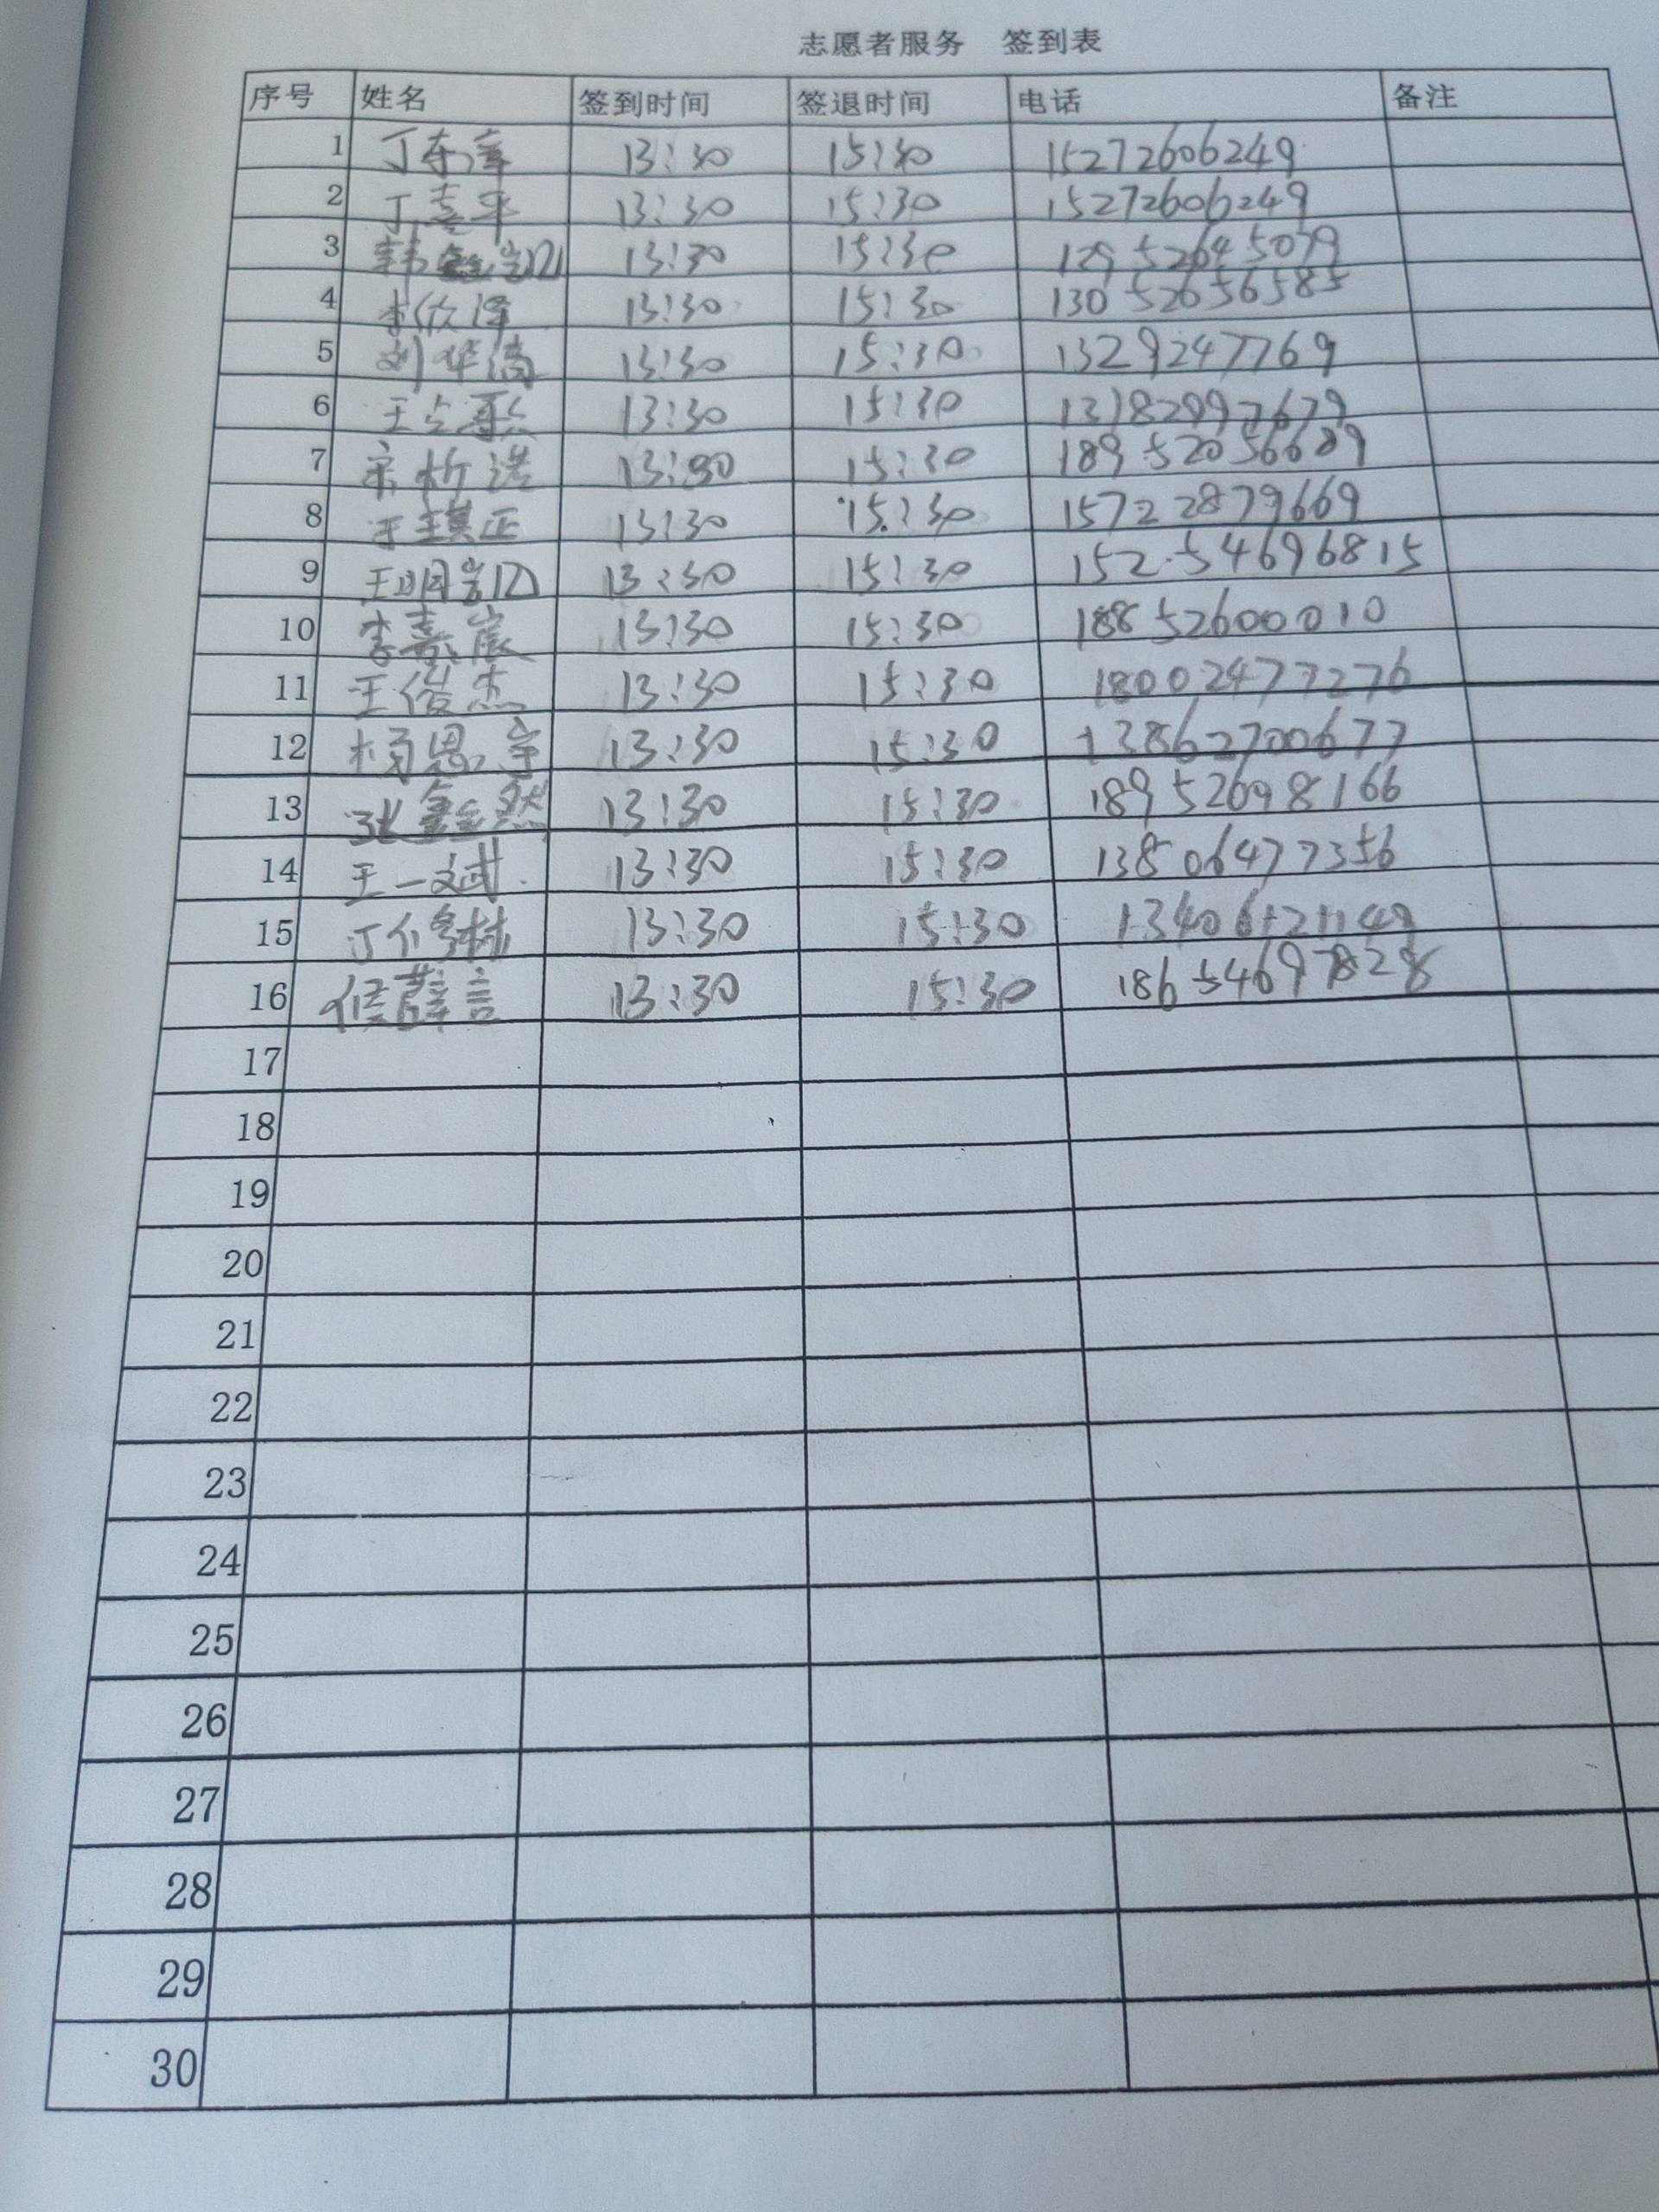 志愿者服务 签到表
序号 姓名 签到时间 签退时间 电话 备注
1 丁东 13:30 15:30 15272606249
2 丁 13:30 15:30 15272606249
3 韩 13:30 15:30
4 李依泽 13:30 15:30 13052656585
5 刘华 13:30 15:30 1329247769
6 王 13:30 15:30 13182997679
7 宋析 13:30 15:30
8 于琪正 13:30 15:30 15722879669
9 王明凯 13:30 15:30 15254696815
10 李嘉宸 13:30 15:30 18852600010
11 王俊杰 13:30 15:30 18002477276
12 杨恩宇 13:30 15:30 13862700677
13 张鑫然 13:30 15:30 18952698166
14 王一斌 13:30 15:30 13806477356
15 丁 13:30 15:30
16 13:30 15:30 18654697828
17
18
19
20
21
22
23
24
25
26
27
28
29
30